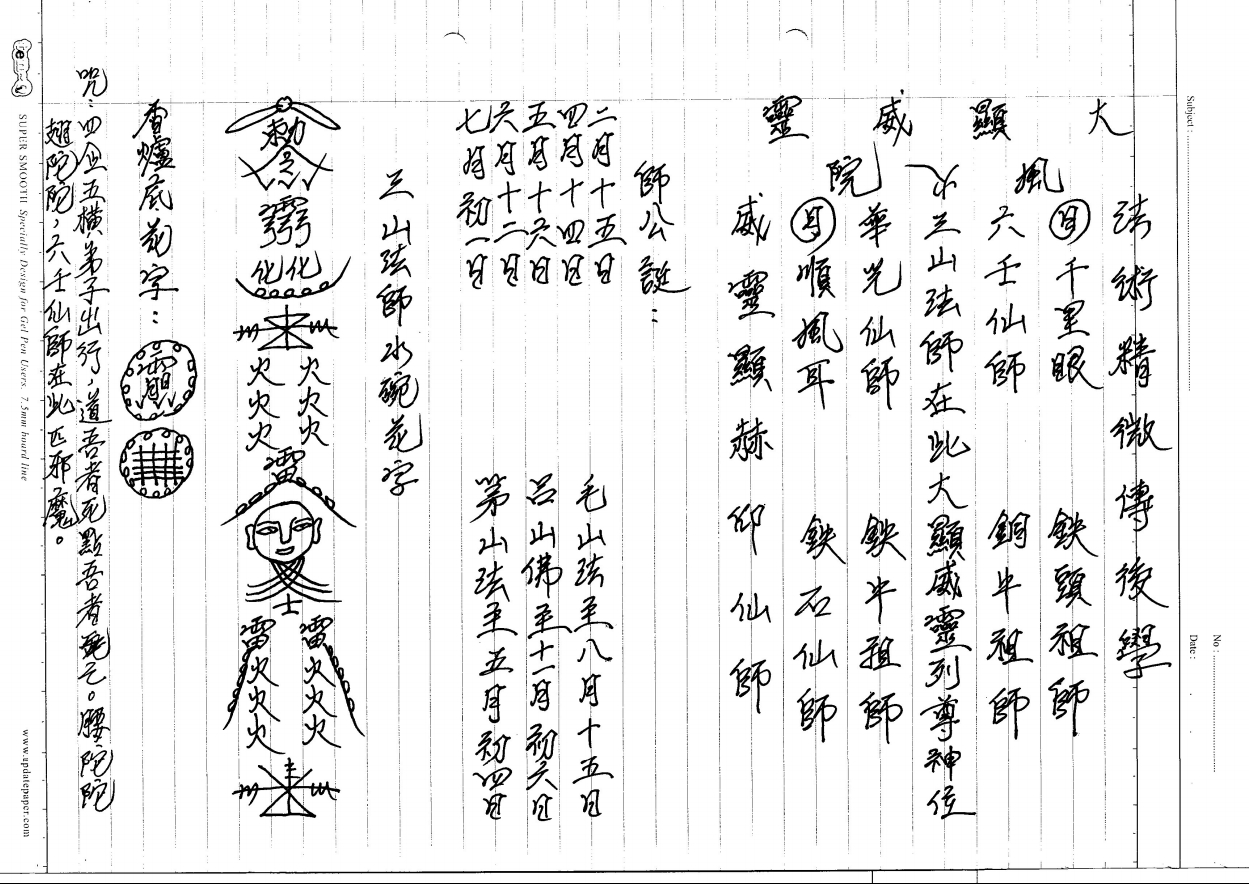 大顯威靈
風火院
法術精微傳後學
日千里眼 鉄頭祖師
六壬仙師 銅牛祖師
三山法師在此大顯威靈列尊神位
華光仙師 鉄牛祖師
月順風耳 鉄石仙師
威靈顯赫仰仙師
師公誕：
二月十五日 毛山法主八月十五日
四月十四日 呂山佛主十一月初六日
五月十六日 茅山法主五月初四日
六月十二日
七月初一日
三山法師水碗花字
勅
化化
火火
火火
火火
雷
士
雷雷
火火
火火
火火
香爐底花字：
咒：四企五橫弟子出行，道吾者死點吾者亡。腰陀陀
翅陀陀，六壬仙師在此匹邪魔。
Subject :
No :
Date :
SUPER SMOOTH Specially Design for Gel Pen Users. 7.5mm board line
www.updatepaper.com